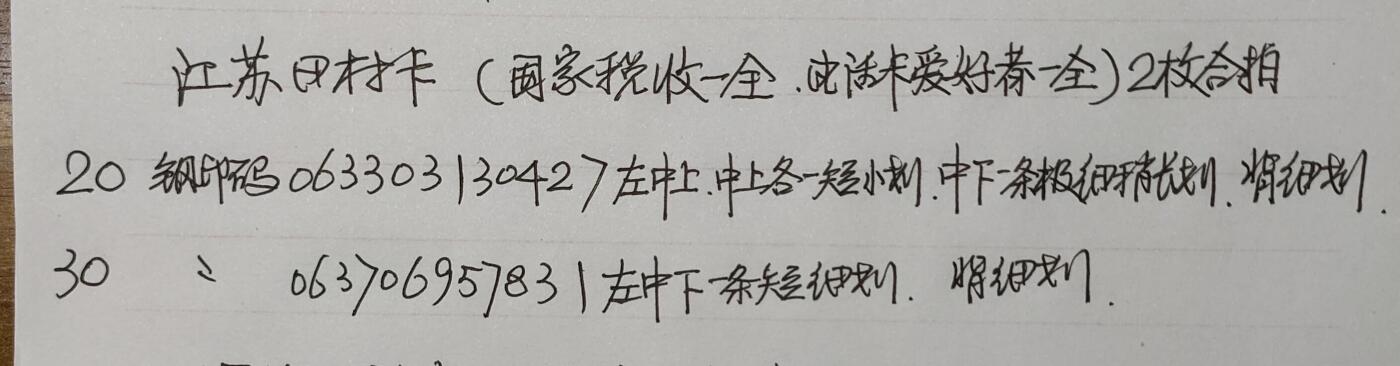 江苏田村卡（国家税收一全.此话卡爱好者一全）2枚合拍
20 钢印码063303130427左中上.中上各一短小划.中下一条极细稍长划.稍细划.
30 〃 063706957831左中下一条短细划.稍细划.